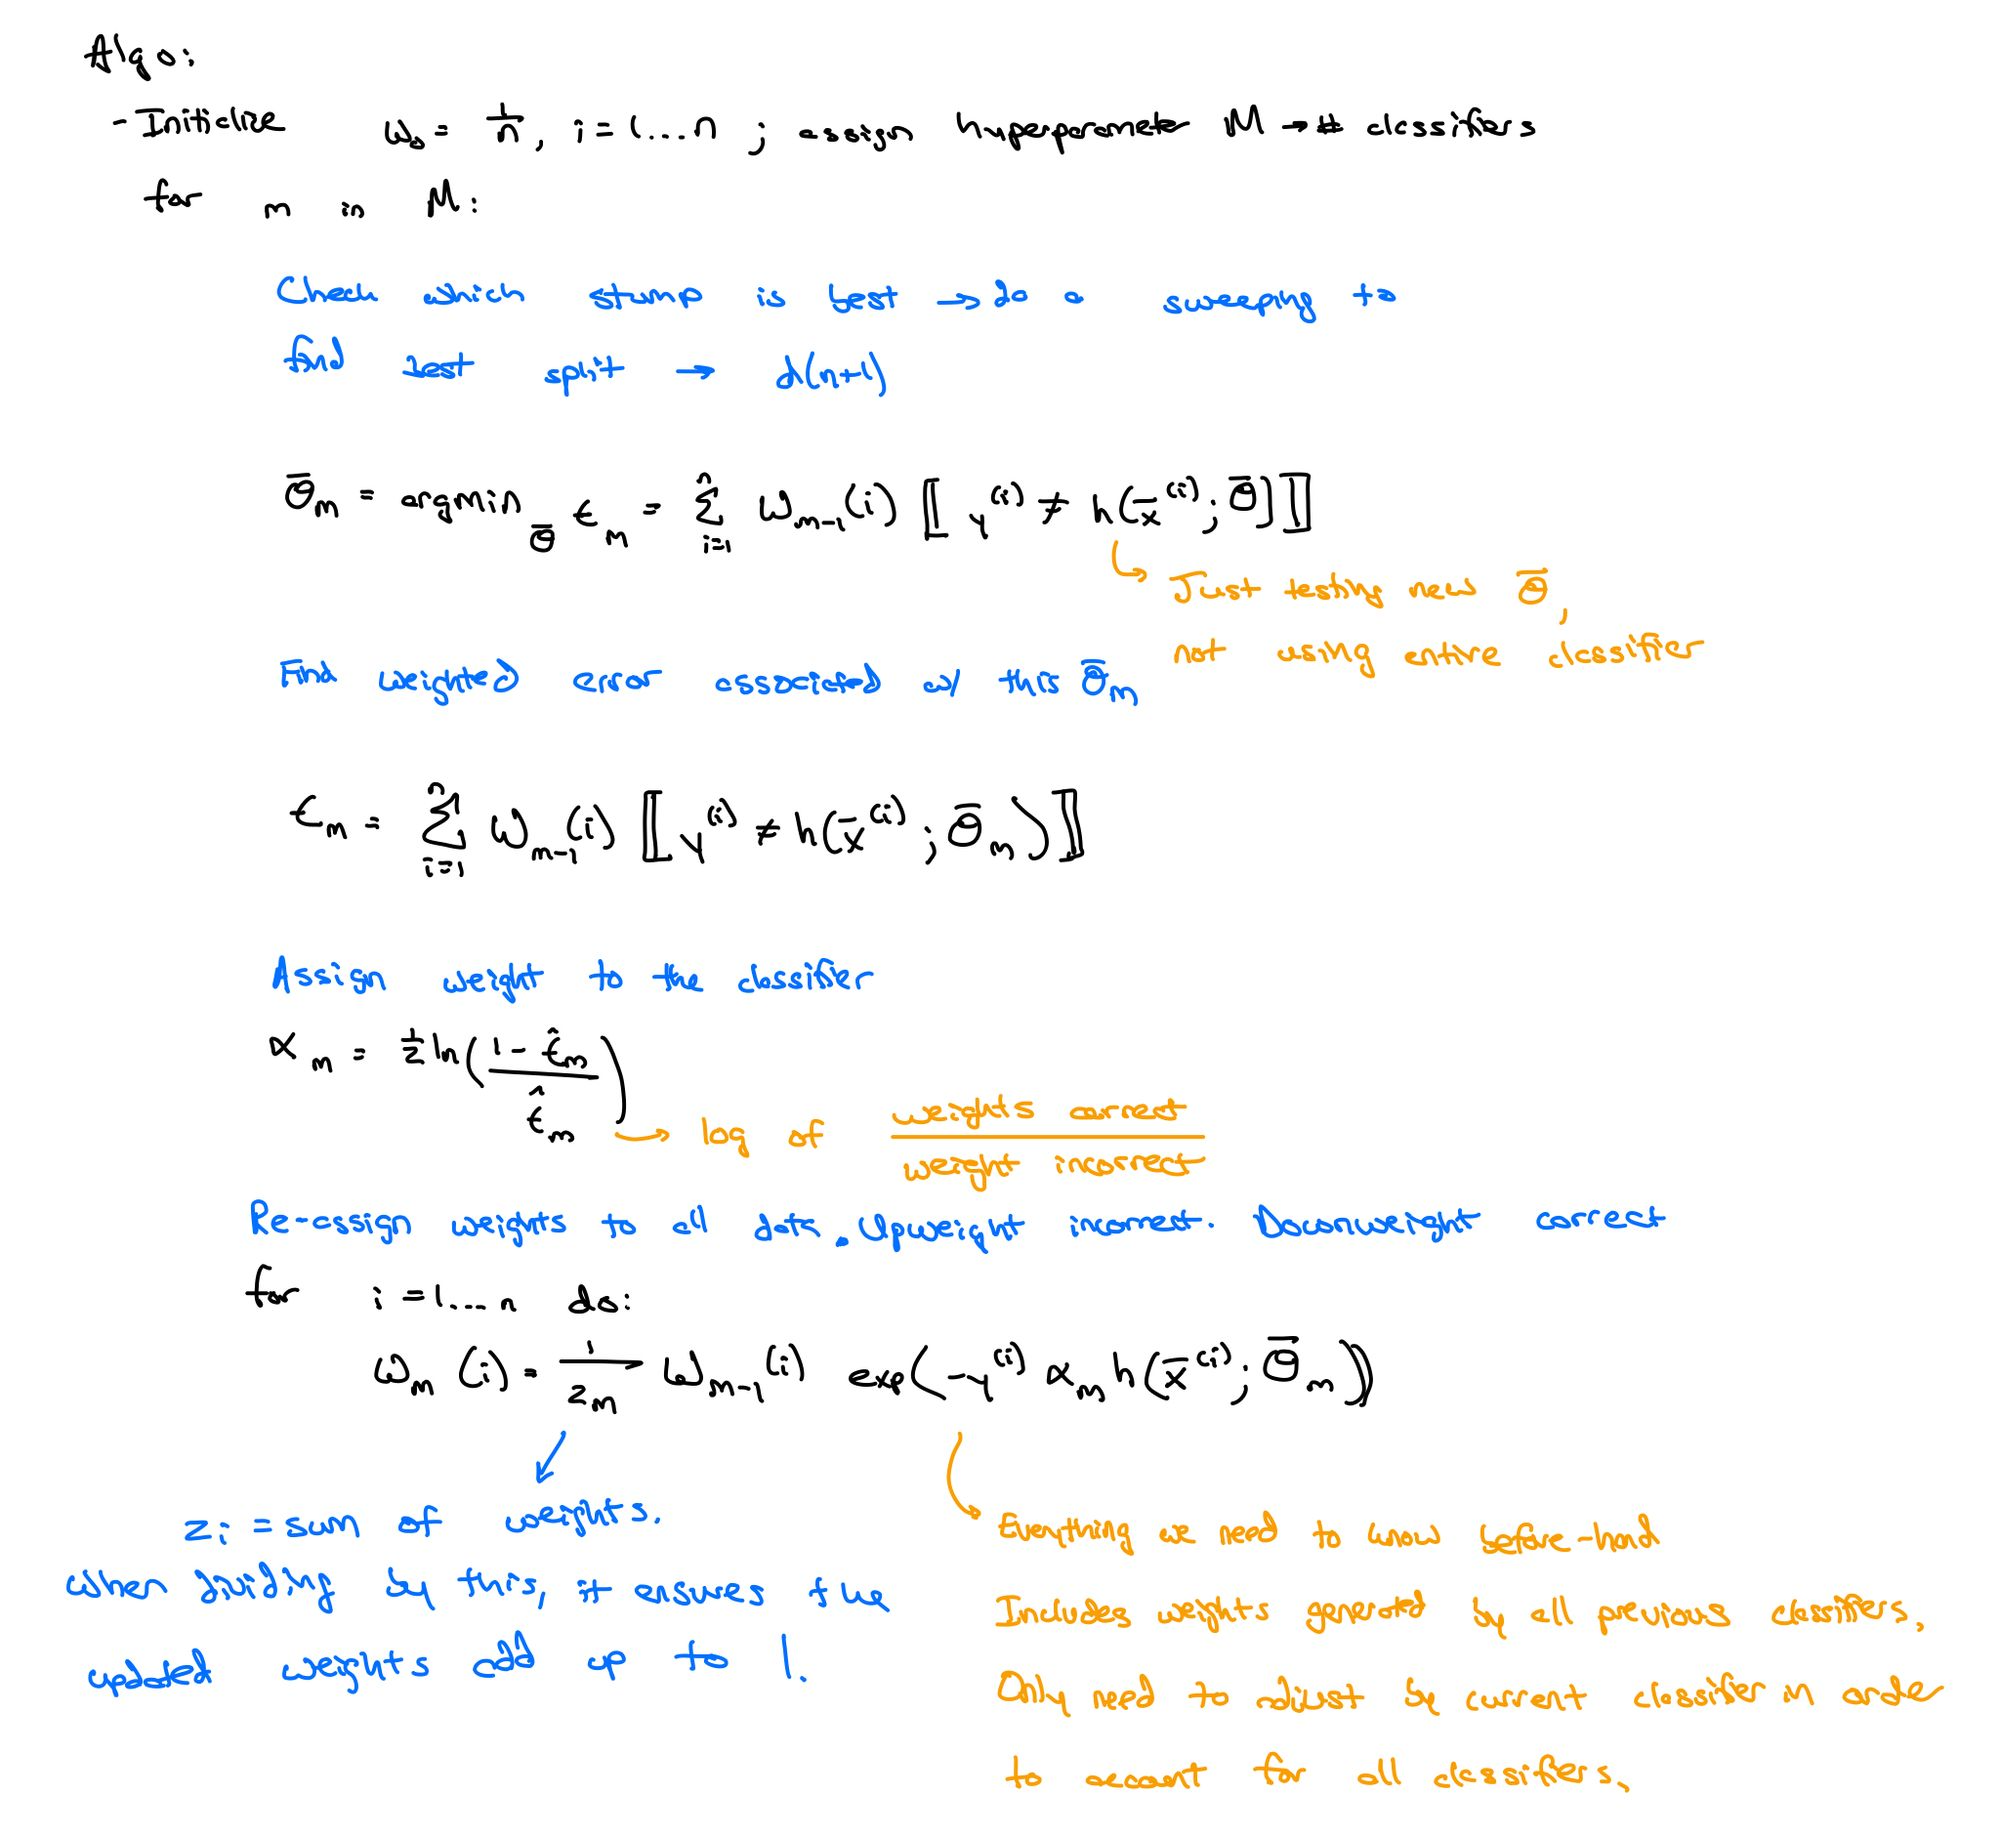 Algo:
- Initialize w₀ = 1/n, i = 1...n ; assign hyperparameter M → # classifiers
for m in M:
Check which stump is best → do a sweeping to
find best split → d(n+1)
θ̄ₘ = argmin_θ̄ εₘ = Σᵢ₌₁ⁿ wₘ₋₁(i) ⟦y⁽ⁱ⁾ ≠ h(x̄⁽ⁱ⁾; θ̄)⟧
Just testing new θ̄,
not using entire classifier
Find weighted error associated w/ this θ̄ₘ
εₘ = Σᵢ₌₁ⁿ wₘ₋₁(i) ⟦y⁽ⁱ⁾ ≠ h(x̄⁽ⁱ⁾; θ̄ₘ)⟧
Assign weight to the classifier
αₘ = ½ ln((1 - ε̂ₘ) / ε̂ₘ)
→ log of weights correct / weight incorrect
Re-assign weights to all data. Upweight incorrect. Downweight correct
for i = 1....n do:
wₘ(i) = 1/zₘ wₘ₋₁(i) exp(-y⁽ⁱ⁾ αₘ h(x̄⁽ⁱ⁾; θ̄ₘ))
zᵢ = sum of weights.
When dividing by this, it ensures the
updated weights add up to 1.
Everything we need to know before-hand
Includes weights generated by all previous classifiers.
Only need to adjust by current classifier in orde
to account for all classifiers.